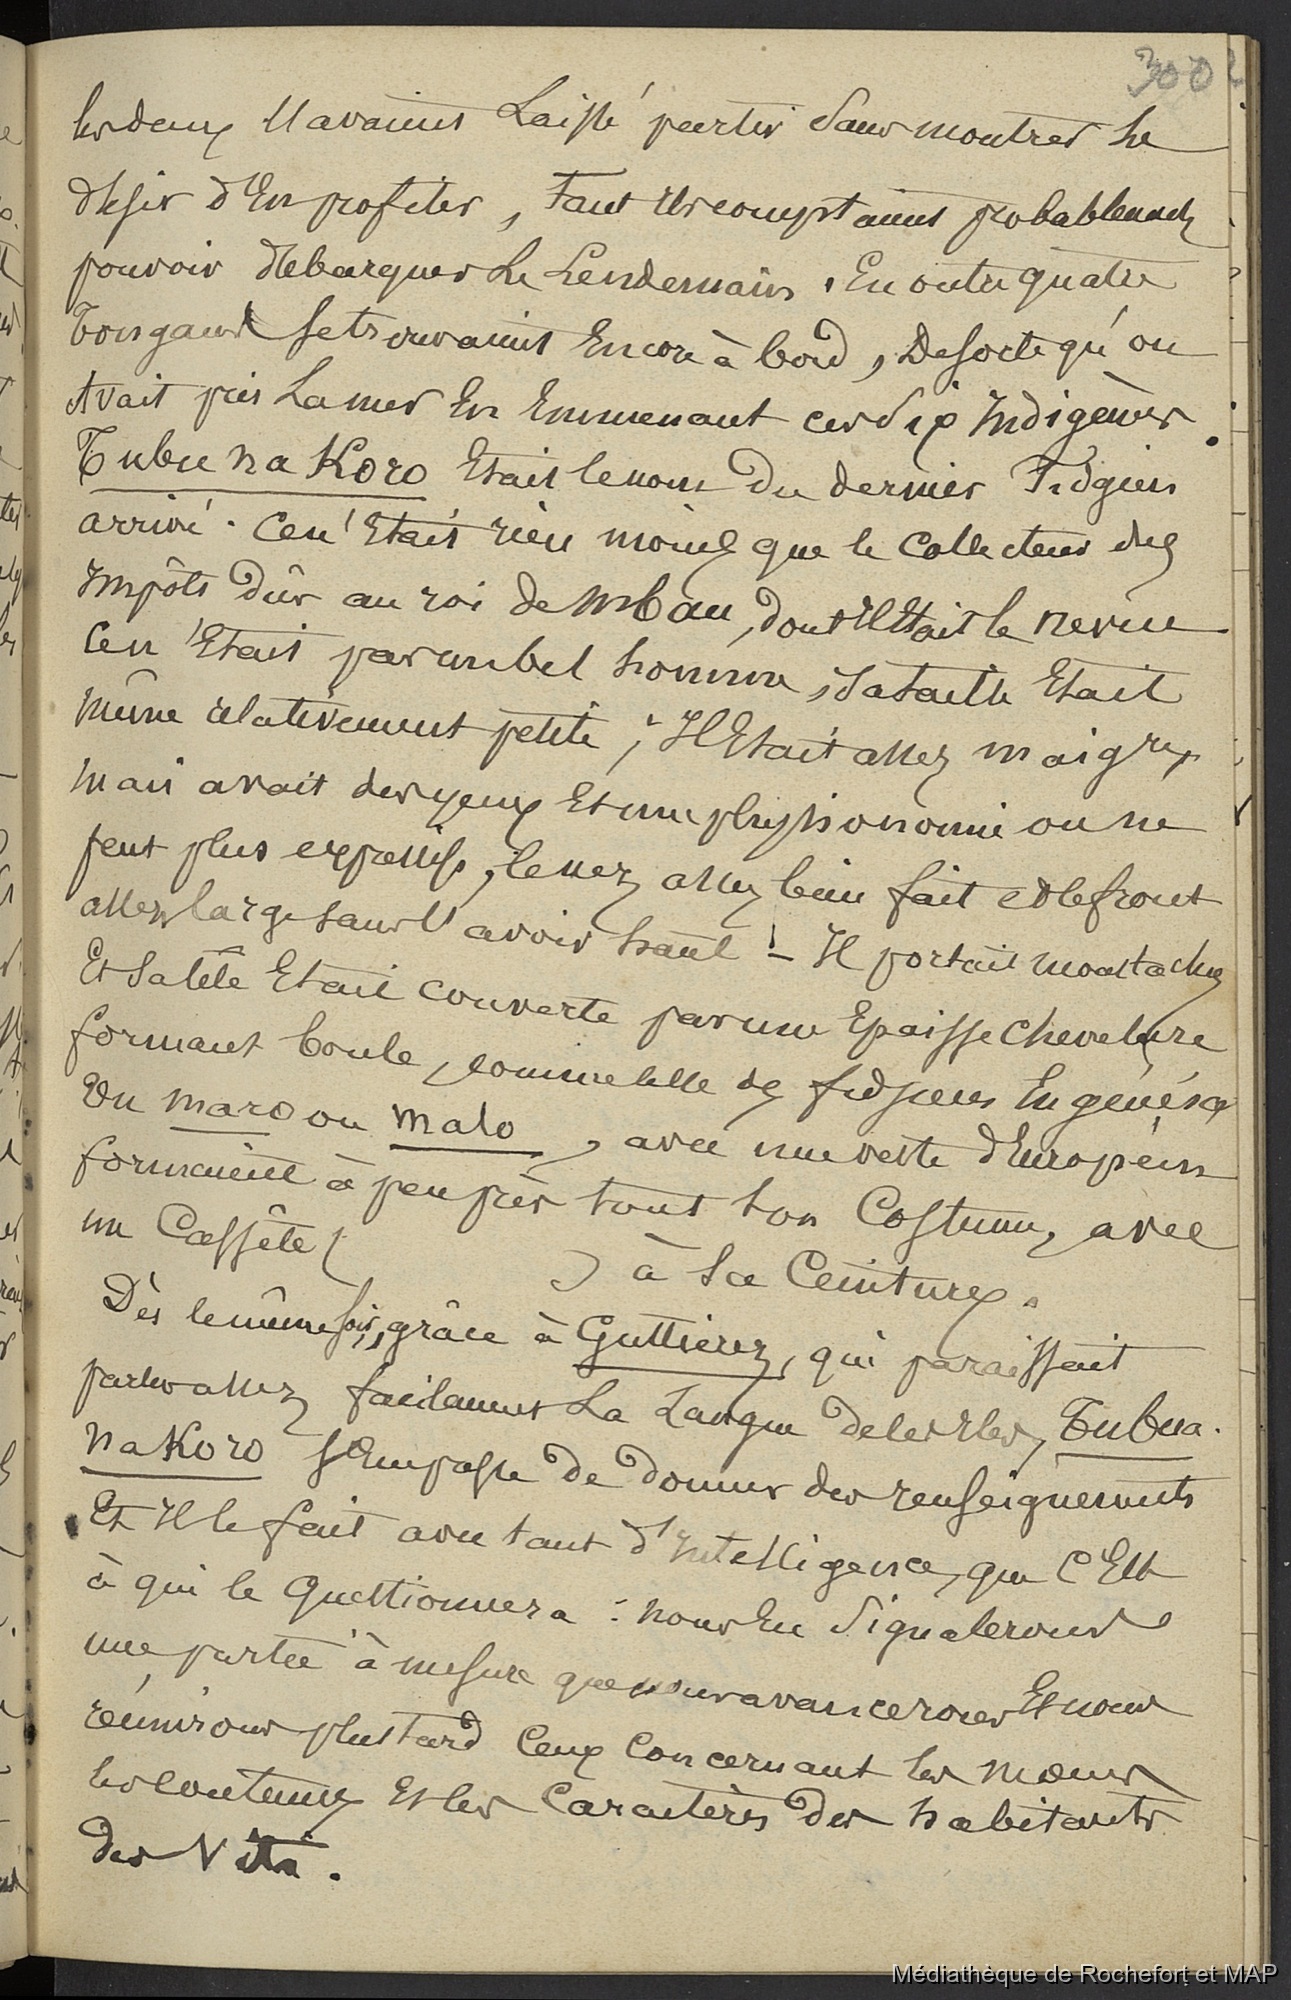 300
les deux l'avaient Laissé partir Sans montrer Le
désir d'En profiter, Tant Ils comptaient probablement
pouvoir débarquer Le Lendemain. En outre quatre
Tongans se trouvaient Encore à bord, De sorte qu'on
Avait pris La mer En Emmenant ces six Indigènes.
Tubu na Koro Etait le nom Du dernier Fidgien
arrivé. Ce n'Etait rien moins que le Collecteur des
Impôts Dûs au roi de Mbau, dont Il Etait le neveu
Ce n'Etait pas un bel homme, Sa taille Etait
même relativement petite; Il Etait assez maigre,
Mais avait des yeux Et une physionomie on ne
peut plus expressifs, le nez assez bien fait et le front
assez large sans l'avoir haut - Il portait moustache
Et Sa tête Etait couverte par une Epaisse Chevelure
formant boule, comme celle des fidgiens En général
Un maro ou malo, avec une veste d'Européen
formaient à peu près tout son Costume, avec
un Casse-tête ( ) à Sa Ceinture.
Dès le même soir, grâce à Guttierez, qui paraissait
parler assez facilement La Langue de les Iles, Tubua.
na Koro s'Empresse De Donner des renseignements
Et Il le fait avec tant d'Intelligence, que C'Est
à qui le Questionnera: nous En Signalerons
une partie à mesure que nous avancerons Et nous
réunirons plus tard Ceux Concernant les Mœurs
les Coutumes Et les Caractères Des habitants
des Viti.
Médiathèque de Rochefort et MAP